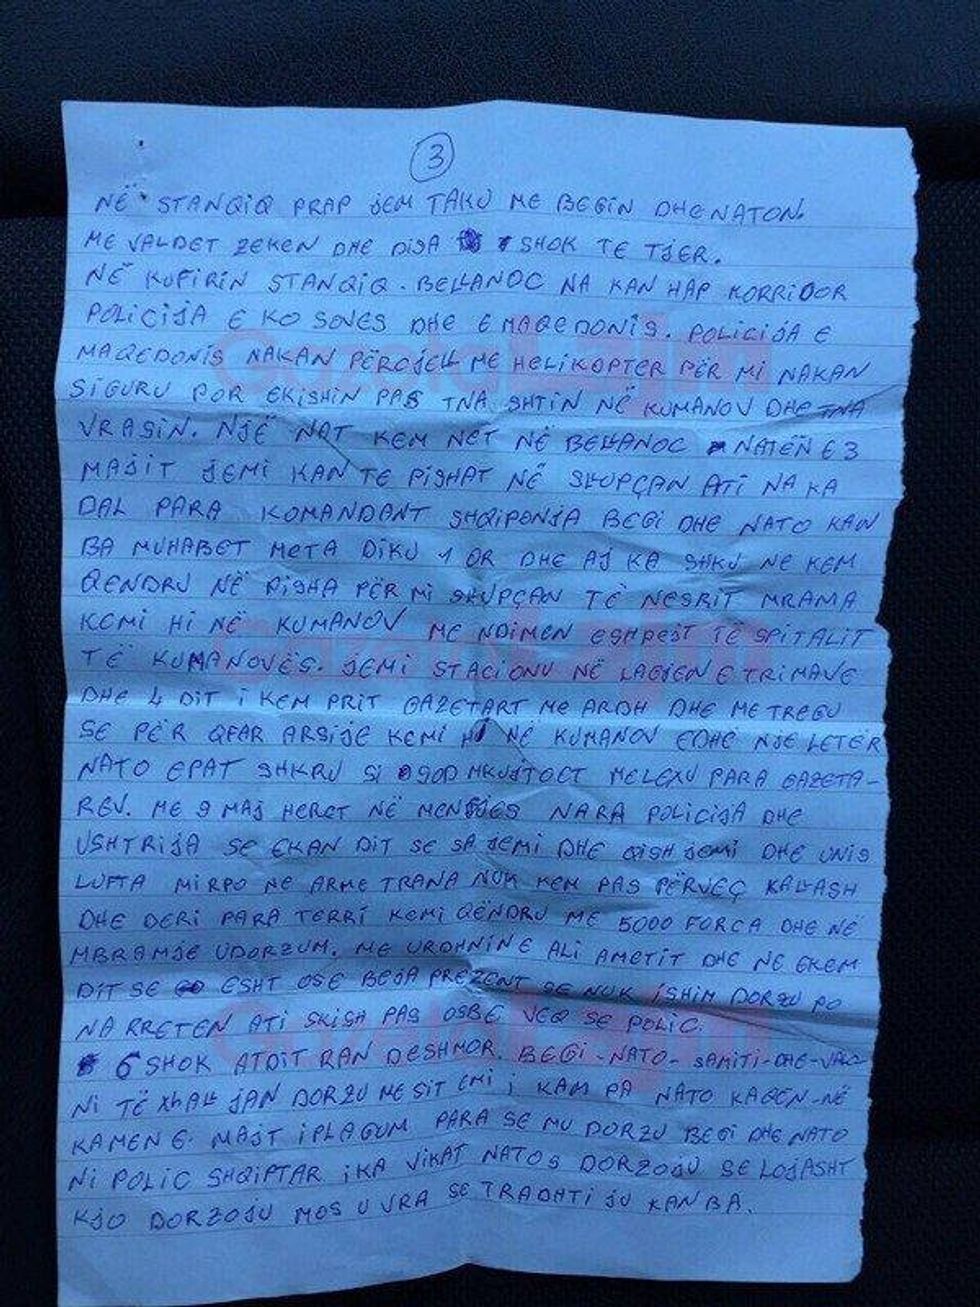 3
NË STANQIQ PRAP JEM TAKU ME BEGIN DHE NATON.
ME VALDET ZEKEN DHE DISA SHOK TE TJER.
NË KUFIRIN STANQIQ - BELLANOC NA KAN HAP KORRIDOR
POLICIJA E KOSOVES DHE E MAQEDONIS. POLICIJA E
MAQEDONIS NAKAN PËRCJELL ME HELIKOPTER PËR MI NAKAN
SIGURU POR EKISHIN PAS TNA SHTIN NË KUMANOV DHE TNA
VRASIN. NJË NAT KEM NET NË BELLANOC NATËN E 3
MAJIT JEMI KAN TE PISHAT NË SLUPÇAN ATI NA KA
DAL PARA KOMANDANT SHQIPONJA BEGI DHE NATO KAN
BA MUHABET META DIKU 1 OR DHE AJ KA SHKU NE KEM
QENDRU NË PISHA PËR MI SLUPÇAN TË NESRIT MRAMA
KEMI HI NË KUMANOV ME NDIMEN ESHPEJT TË SPITALIT
TË KUMANOVËS. JEMI STACIONU NË LAGJEN E TRIMAVE
DHE 4 DIT I KEM PRIT GAZETART ME ARDH DHE ME TREGU
SE PËR QFAR ARSIJE KEMI HI NË KUMANOV EDHE NJE LETËR
NATO EPAT SHKRU SI MELEXU PARA GAZETA-
REV. ME 9 MAJ HERET NË MENGJES NARA POLICIJA DHE
USHTRIJA SE EKAN DIT SE SA JEMI DHE QISH JEMI DHE UNIS
LUFTA MIRPO NE ARME TRANA NUK KEM PAS PËRVEÇ KALLASH
DHE DERI PARA TERRI KEMI QËNDRU ME 5000 FORCA DHE NË
MBRAMJE UDORZUM. ME URDHNIN E ALI AMETIT DHE NE EKEM
DIT SE ESHT OSE BEJA PREZENT SE NUK ISHIM DORZU PO
NA RRETEN ATI SKISH PAS OSBE VEQ SE POLIC.
6 SHOK ATDIT RAN DESHMOR. BEGI - NATO - SAMITI - DHE - VALO
NI TË XHALL JAN DORZU ME SIT EMI I KAM PA NATO KAQEN - NË
KAMEN E MAJT IPLAGUM PARA SE MU DORZU BEGI DHE NATO
NI POLIC SHQIPTAR IKA VIKAT NATOS DORZOJU SE LOJASHT
KJO DORZOJU MOS U VRA SE TRADHTI JU KAN BA.